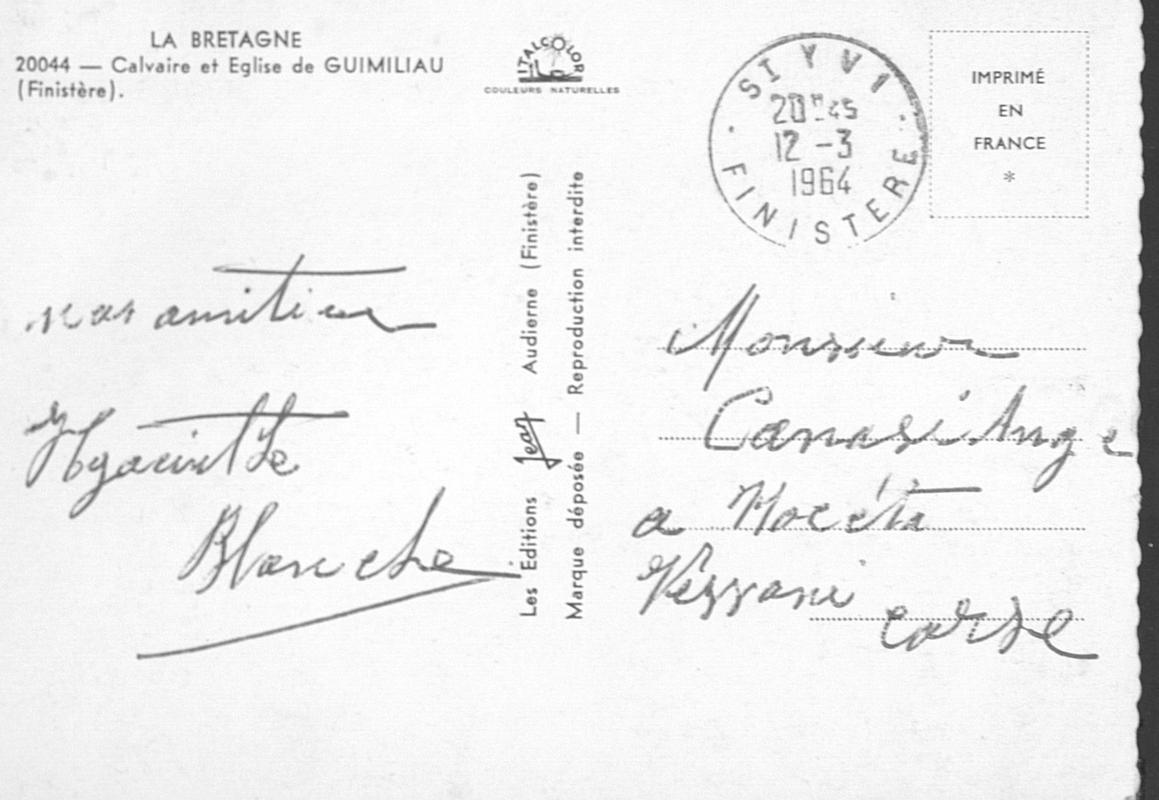 LA BRETAGNE
20044 — Calvaire et Eglise de GUIMILIAU
(Finistère).
ITALCOLOR
COULEURS NATURELLES
ST YVI
20H45
12 -3
1964
FINISTERE
IMPRIMÉ
EN
FRANCE
*
nos amitiés
Hyacinthe
Blanche
Les Editions Jean Audierne (Finistère)
Marque déposée — Reproduction interdite
Monsieur
Canasi Ange
a Nocéta
Vezzani
corse